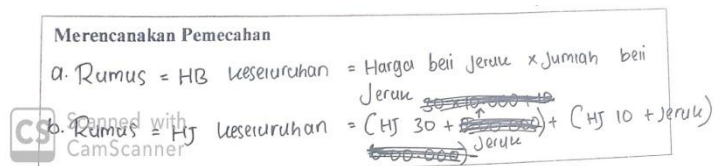 Merencanakan Pemecahan
a. Rumus = HB keseluruhan = Harga beli Jeruk x Jumlah beli
Jeruk
b. Rumus = HJ keseluruhan = (HJ 30 + Jeruk) + (HJ 10 + Jeruk)
CS Scanned with
CamScanner